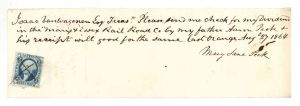 Isaac Van Wagenen Esq Treas. Please send me check for my Dividend
in the Morris & Essex Rail Road Co by my father Aaron Peck &
his receipt will good for the same East Orange Aug 27 1864
Mary Jane Peck